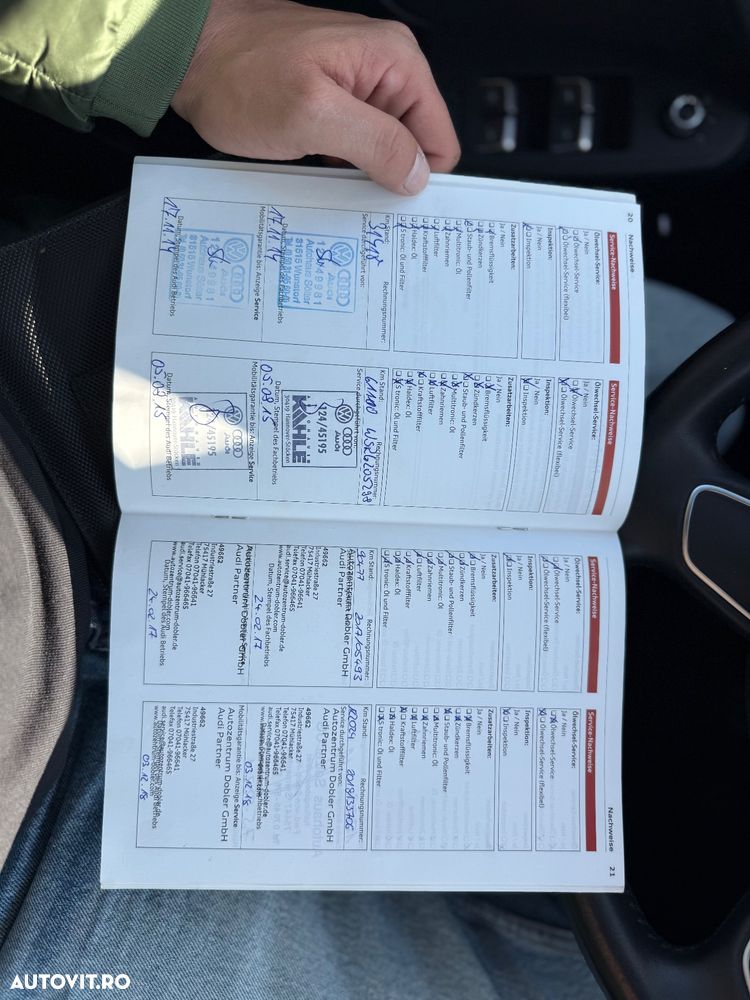 20
Nachweise
Service-Nachweise
Ölwechsel-Service:
Ja / Nein
Ölwechsel-Service
Ölwechsel-Service (flexibel)
Inspektion:
Ja / Nein
Inspektion
Zusatzarbeiten:
Ja / Nein
Bremsflüssigkeit
Zündkerzen
Staub- und Pollenfilter
Multitronic: Öl
Zahnriemen
Luftfilter
Kraftstofffilter
Haldex: Öl
S tronic: Öl und Filter
Km Stand:
Rechnungsnummer:
Service durchgeführt von:
Audi
31515 Wunstorf
17.11.14
Datum, Stempel des Fachbetriebs
Mobilitätsgarantie bis: Anzeige Service
31515 Wunstorf
17.11.14
Datum, Stempel des Audi Betriebs
Service-Nachweise
Ölwechsel-Service:
Ja / Nein
Ölwechsel-Service
Ölwechsel-Service (flexibel)
Inspektion:
Ja / Nein
Inspektion
Zusatzarbeiten:
Ja / Nein
Bremsflüssigkeit
Zündkerzen
Staub- und Pollenfilter
Multitronic: Öl
Zahnriemen
Luftfilter
Kraftstofffilter
Haldex: Öl
S tronic: Öl und Filter
Km Stand:
Rechnungsnummer:
61100
Service durchgeführt von:
Audi
424/45195
KAHLE
05.09.15
Datum, Stempel des Fachbetriebs
Mobilitätsgarantie bis: Anzeige Service
Audi
/45195
KAHLE
05.09.15
Datum, Stempel des Audi Betriebs
Service-Nachweise
Ölwechsel-Service:
Ja / Nein
Ölwechsel-Service
Ölwechsel-Service (flexibel)
Inspektion:
Ja / Nein
Inspektion
Zusatzarbeiten:
Ja / Nein
Bremsflüssigkeit
Zündkerzen
Staub- und Pollenfilter
Multitronic: Öl
Zahnriemen
Luftfilter
Kraftstofffilter
Haldex: Öl
S tronic: Öl und Filter
Km Stand:
Rechnungsnummer:
2017105493
Autozentrum Dobler GmbH
Audi Partner
49662
Industriestraße 27
75417 Mühlacker
Telefon 07041-96641
Telefax 07041-966465
audi.service@autozentrum-dobler.de
www.autozentrum-dobler.com
24.02.17
Datum, Stempel des Fachbetriebs
Autozentrum Dobler GmbH
Audi Partner
49662
Industriestraße 27
75417 Mühlacker
Telefon 07041-96641
Telefax 07041-966465
audi.service@autozentrum-dobler.de
www.autozentrum-dobler.de
Datum, Stempel des Audi Betriebs
24.02.17
Nachweise
21
Service-Nachweise
Ölwechsel-Service:
Ja / Nein
Ölwechsel-Service
Ölwechsel-Service (flexibel)
Inspektion:
Ja / Nein
Inspektion
Zusatzarbeiten:
Ja / Nein
Bremsflüssigkeit
Zündkerzen
Staub- und Pollenfilter
Multitronic: Öl
Zahnriemen
Luftfilter
Kraftstofffilter
Haldex: Öl
S tronic: Öl und Filter
Km Stand:
Rechnungsnummer:
2018133706
Service durchgeführt von:
Autozentrum Dobler GmbH
Audi Partner
49662
Industriestraße 27
75417 Mühlacker
Telefon 07041-96641
Telefax 07041-966465
03.12.18
Mobilitätsgarantie bis: Anzeige Service
Autozentrum Dobler GmbH
Audi Partner
49662
Industriestraße 27
75417 Mühlacker
Telefon 07041-96641
Telefax 07041-966465
03.12.18
AUTOVIT.RO